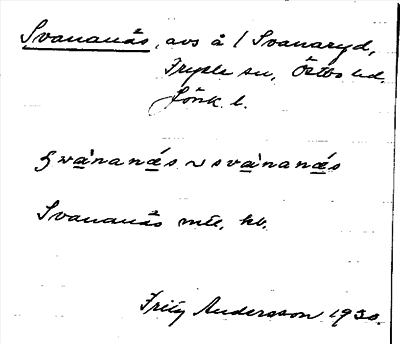 Svananäs, avs å / Svanaryd,
Fryele sn, Östbo hd.
Jönk. l.
svànanä́s ~ svànanä́s
Svananäs mtl, kb.
Fritz Andersson 1930.